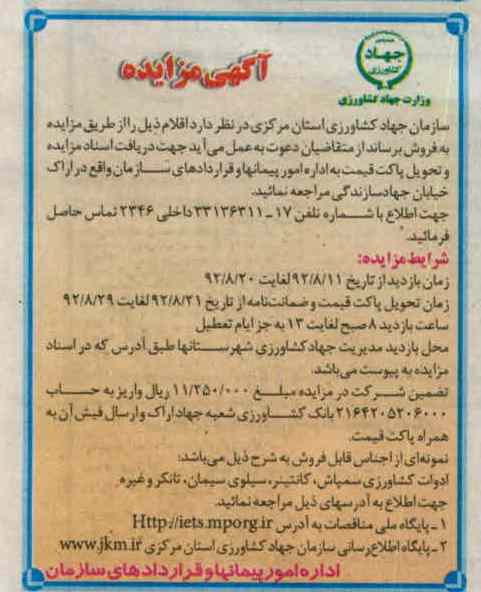 جهاد
کشاورزی
وزارت جهاد کشاورزی
آگهی مزایده
سازمان جهاد کشاورزی استان مرکزی در نظر دارد اقلام ذیل را از طریق مزایده
به فروش برساند از متقاضیان دعوت به عمل می آید جهت دریافت اسناد مزایده
و تحویل پاکت قیمت به اداره امور پیمانها و قراردادهای سازمان واقع در اراک
خیابان جهادسازندگی مراجعه نمائید.
جهت اطلاع با شماره تلفن ۱۷ - ۳۳۱۳۶۳۱۱ داخلی ۲۳۴۶ تماس حاصل
فرمائید.
شرایط مزایده:
زمان بازدید از تاریخ ۹۲/۸/۱۱ لغایت ۹۲/۸/۲۰
زمان تحویل پاکت قیمت و ضمانت‌نامه از تاریخ ۹۲/۸/۲۱ لغایت ۹۲/۸/۲۹
ساعت بازدید ۸ صبح لغایت ۱۳ به جز ایام تعطیل
محل بازدید مدیریت جهاد کشاورزی شهرستانها طبق آدرس که در اسناد
مزایده به پیوست می‌باشد.
تضمین شرکت در مزایده مبلغ ۱۱/۲۵۰/۰۰۰ ریال واریز به حساب
۲۱۶۴۲۰۵۲۰۶۰۰۰ بانک کشاورزی شعبه جهاد اراک و ارسال فیش آن به
همراه پاکت قیمت.
نمونه‌ای از اجناس قابل فروش به شرح ذیل می‌باشد:
ادوات کشاورزی سمپاش، کانتینر، سیلوی سیمان، تانکر و غیره
جهت اطلاع به آدرسهای ذیل مراجعه نمائید.
۱ - پایگاه ملی مناقصات به آدرس Http://iets.mporg.ir
۲ - پایگاه اطلاع‌رسانی سازمان جهاد کشاورزی استان مرکزی www.jkm.ir
اداره امور پیمانها و قراردادهای سازمان